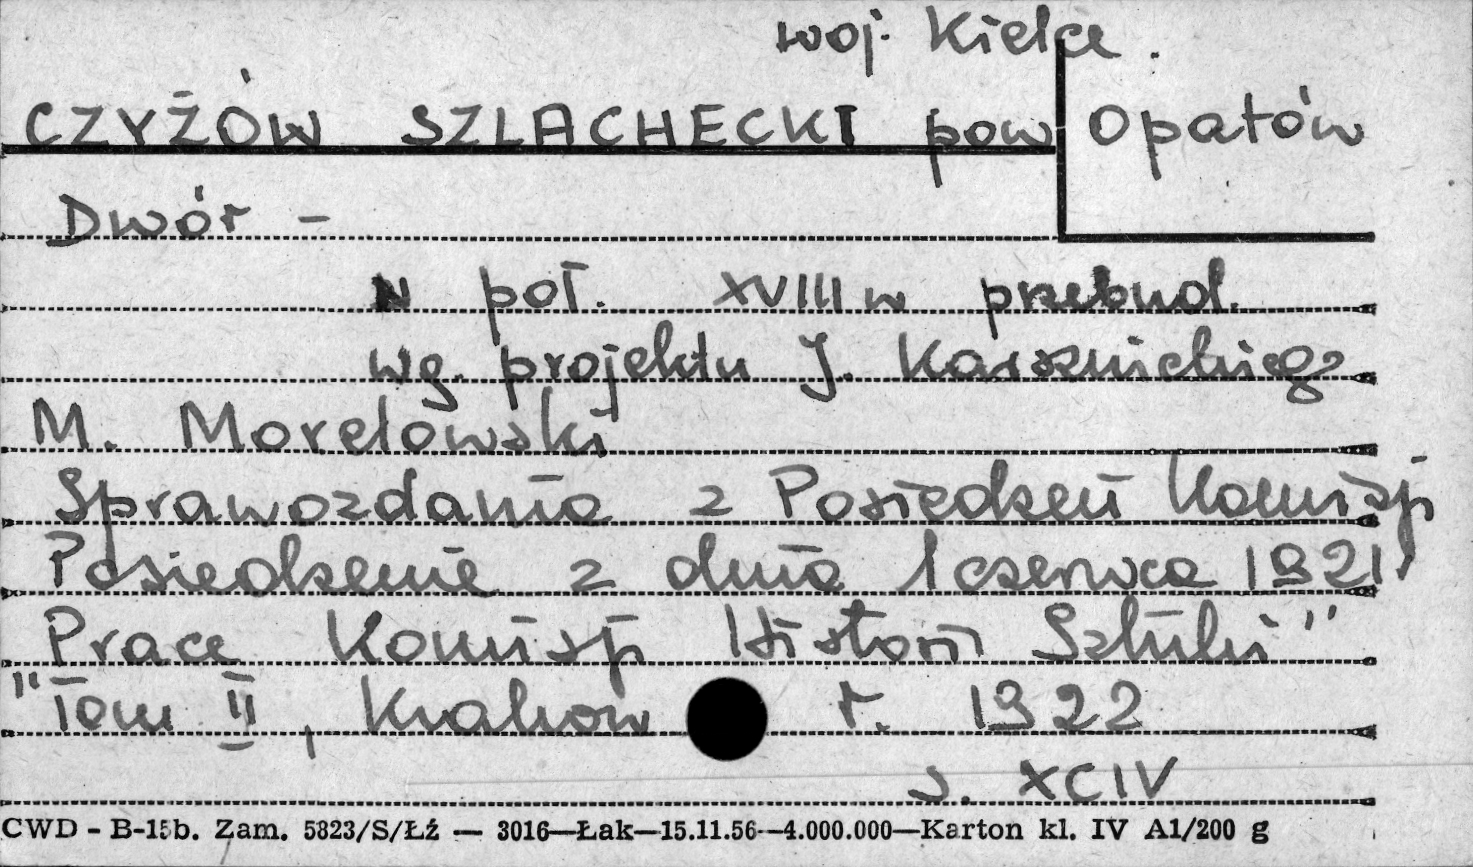 woj. Kielce.
CZYŻÓW SZLACHECKI pow Opatów
Dwór -
W poł. XVIII w przebud.
wg. projektu J. Karsznickiego
M. Morelowski
Sprawozdania z Posiedzeń Komisji
Posiedzenie z dnia 1 czerwca 1921"
Prace Komisji Historii Sztuki"
"Tom II, Kraków r. 1922
s. XCIV
CWD - B-15b. Zam. 5823/S/Łź — 3016—Łak—15.11.56—4.000.000—Karton kl. IV A1/200 g